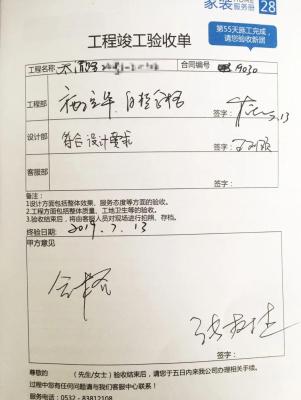 家装 HOME 服务册 28
第55天施工完成，
请您验收新居
工程竣工验收单
工程名称 合同编号 A030
工程部 自检合格
签字： 7.13
设计部 符合设计要求
签字：
客服部
签字：
备注：
1.设计方面包括整体效果、服务态度等方面的验收。
2.工程方面包括整体质量、工地卫生等的验收。
3.验收结束后，将由客服人员对现场进行拍照、存档。
终验日期： 2019.7.13
甲方意见
合格
签字：
尊敬的 （先生/女士）验收结束后，请您于五日内来我公司办理相关手续。
过程中您有任何问题请与我们客服中心联系！
服务电话：0532-83812108